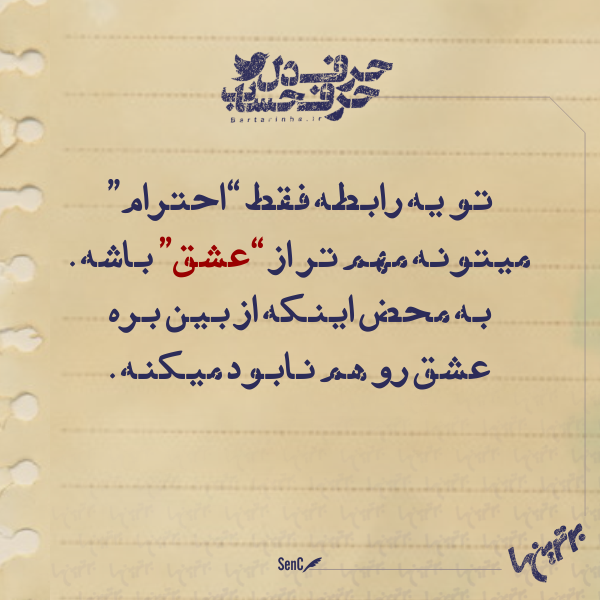 حرف دل
حرف حساب
Bartarinha.ir
تو یه رابطه فقط “احترام”
میتونه مهم تر از “عشق” باشه.
به محض اینکه از بین بره
عشق رو هم نابود میکنه.
SenC
برترینها